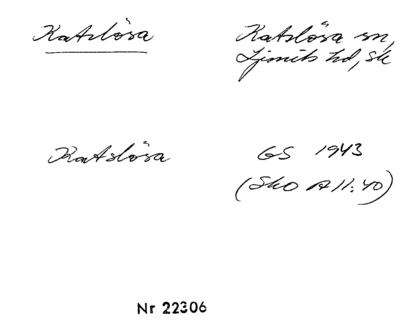 Katslösa Katslösa sn,
Ljunits hd, Sk
Katslösa GS 1943
(SkO A11:40)
Nr 22306